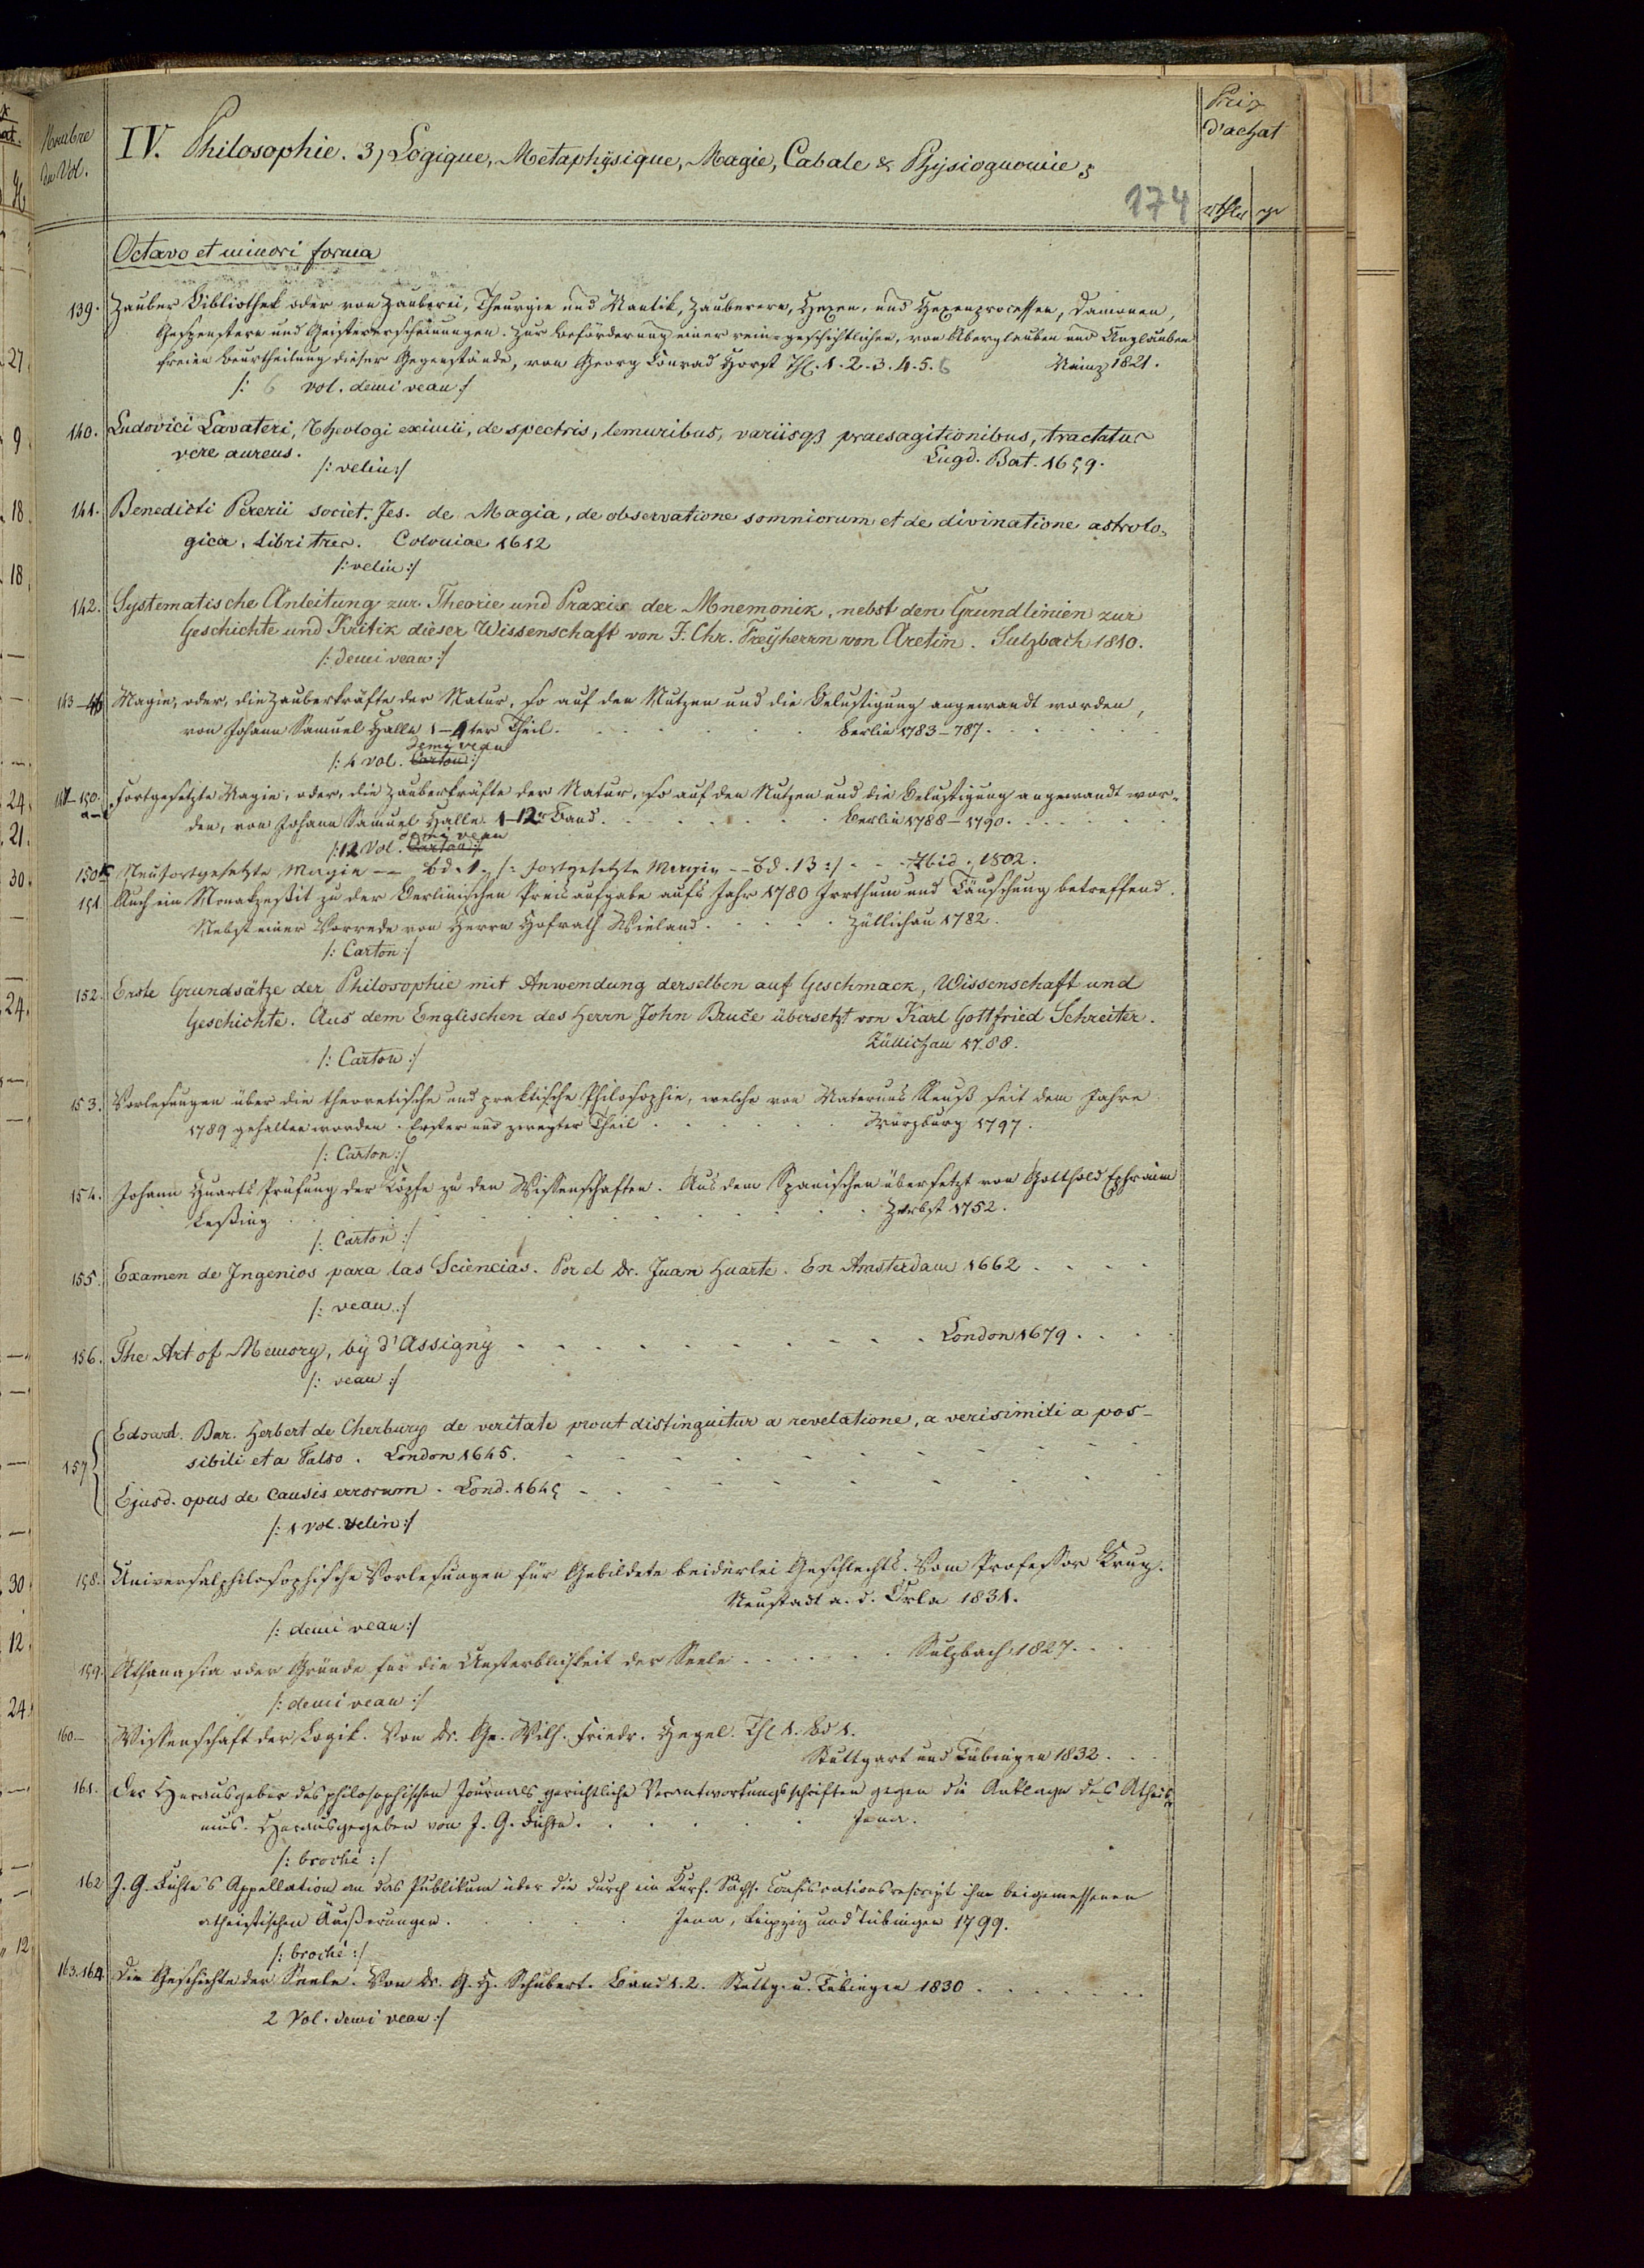 Nombre
du Vol.
IV. Philosophie. 3, Logique, Metaphysique, Magie, Cabale & Physiognomie,
Prix
d'achat
174
rthlr gr
Octavo et minori forma
139. Zauber Bibliothek oder von Zauberei, Theurgie und Mantik, Zauberern, Hexen, und Hexenprocessen, Dämonen,
Gespenstern und Geistererscheinungen. Zur Beförderung einer rein-geschichtlichen, von Aberglauben und Unglauben
freien Beurtheilung dieser Gegenstände, von Georg Conrad Horst Thl. 1. 2. 3. 4. 5. 6 Mainz 1821.
/: 6 vol. demi veau :/
140. Ludovici Lavateri, Theologi eximii, de spectris, lemuribus, variisq3 praesagitionibus, tractatus
vere aureus. Lugd. Bat. 1659.
/: velin :/
141. Benedicti Pererii societ. Jes. de Magia, de observatione somniorum et de divinatione astrolo-
gica, Libri tres. Coloniae 1612
/: velin :/
142. Systematische Anleitung zur Theorie und Praxis der Mnemonik, nebst den Grundlinien zur
Geschichte und Kritik dieser Wissenschaft von J. Chr. Freyherrn von Aretin. Sulzbach 1810.
/: demi veau :/
143-46 Magie, oder, die Zauberkräfte der Natur, so auf den Nutzen und die Belustigung angewandt worden,
von Johann Samuel Halle 1-4ter Theil. Berlin 1783-787.
demi veau
/: 4 vol. Carton :/
147-150. Fortgesetzte Magie, oder, die Zauberkräfte der Natur, so auf den Nutzen und die Belustigung angewandt wor-
den, von Johann Samuel Halle. 1-12r Band. Berlin 1788-1790.
demi veau
/: 12 Vol. Carton :/
150 Neufortgesetzte Magie -- Bd. 1. /: fortgesetzte Magie -- Bd. 13 :/ Ibid. 1802.
151. Auch ein Nonakzessit zu der Berlinischen Preisaufgabe aufs Jahr 1780 Irrthum und Täuschung betreffend.
Nebst einer Vorrede von Herrn Hofrath Wieland. Züllichau 1782.
/: Carton :/
152. Erste Grundsätze der Philosophie mit Anwendung derselben auf Geschmack, Wissenschaft und
Geschichte. Aus dem Englischen des Herrn John Bruce übersetzt von Karl Gottfried Schreiter.
Züllichau 1788.
/: Carton :/
153. Vorlesungen über die theoretische und praktische Philosophie, welche von Maternus Reuß seit dem Jahre
1789 gehalten worden. Erster und zweyter Theil Würzburg 1797.
/: Carton :/
154. Johann Huarts Prüfung der Köpfe zu den Wissenschaften. Aus dem Spanischen übersetzt von Gotthold Ephraim
Leßing Zerbst 1752.
/: Carton :/
155. Examen de Ingenios para las Sciencias. Por el Dr. Juan Huarte. En Amsterdam 1662
/: veau :/
156. The Art of Memory, by d'Assigny London 1679.
/: veau :/
157 Edoard. Bar. Herbert de Cherbury de veritate prout distinguitur a revelatione, a verisimili a pos-
sibili et a Falso. London 1645.
Ejusd. opus de causis errorum. Lond. 1645
/: 1 vol. velin :/
158. Universalphilosophische Vorlesungen für Gebildete beiderlei Geschlechts. Vom Professor Krug.
Neustadt a. d. Orla 1831.
/: demi veau :/
159. Athanasia oder Gründe für die Unsterblichkeit der Seele Sulzbach 1827.
/: demi veau :/
160- Wissenschaft der Logik. Von Dr. Ge. Wilh. Friedr. Hegel. Thl 1. Bd 1.
Stuttgart und Tübingen 1832.
161. Der Herausgeber des philosophischen Journals gerichtliche Verantwortungsschriften gegen die Anklage des Atheis-
mus. Herausgegeben von J. G. Fichte. Jena.
/: broché :/
162 J. G. Fichte's Appellation an das Publikum über die durch ein Kurf. Sächs. Confiscationsrescript ihm beigemessenen
atheistischen Äußerungen. Jena, Leipzig und Tübingen 1799.
/: broché :/
163.164. Die Geschichte der Seele. Von Dr. G. H. Schubert. Band 1. 2. Stuttg. u. Tübingen 1830
2 Vol. demi veau :/